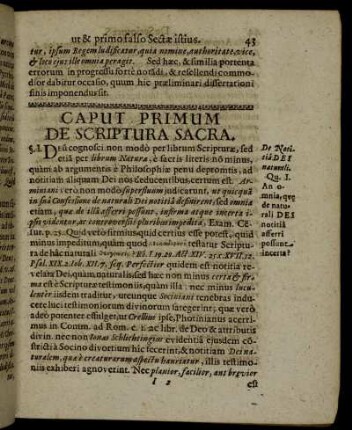 ut & primo falso Sectæ istius. 43
tur, ipsum Regem ludificatur, quia nomine, authoritate, vice,
& loco ejus ille omnia peragit. Sed hæc, & similia portenta
errorum in progressu fortè notādi, & refellendi commo-
dior dabitur occasio, quum hic præliminari dissertationi
finis imponendus sit.
CAPUT PRIMUM
DE SCRIPTURA SACRA.
§. I. Deū cognosci non modò per librum Scripturæ, sed
etiā per librum Naturæ, è sacris literis nō minus,
quàm ab argumentis è Philosophiæ penu depromtis, ad
notitiam aliquam Dei nos deducentibus certum est. Ar-
miniani verò non modò superfluum judicarunt, ut quicquā
in suâ Confessione de naturali Dei notitiâ definirent, sed omnia
etiam, quæ de illâ asseri possunt, infirma atque incerta i-
psis videntur, ac controversiis pluribus impedita, Exam. Cēs.
fur. p. 25. Quid verò firmius, quid certius esse potest, quid
minus impeditum, quàm quod testatur Scriptu-
ra de hâc naturali Rom. I. 19. 21. Act. XIV. 15. & XVII. 27.
Psal. XIX. 2. Iob. XII. 7. seq. Perfectior quidem est notitia re-
velata Dei, quàm naturalis: sed hæc non minus certa & fir-
ma est è Scripturæ testimoniis, quàm illa: nec minus lucu-
lenter iisdem traditur, utcunque Sociniani tenebras indu-
cere luci testimoniorum divinorum satagerint; quæ verò
adeò potenter effulget, ut Crellius ipse, Photinianus acerri-
mus in Comm. ad Rom. c. 1. ac libr. de Deo & attributis
divin. nec non Ionas Schlichtingius evidentiâ ejusdem cō-
stricti à Socino divortium hîc fecerint, & notitiam Dei na-
turalem, quæ è creaturarum aspectu hauriatur, illis testimo-
niis exhiberi agnoverint. Nec planior, facilior, aut brevior
I 2 est
De Noti-
tiâ DEI
naturali.
Qu. I.
An o-
mnia, quæ
de natu-
rali DEI
notitiâ
asseri
possunt,
incerta?